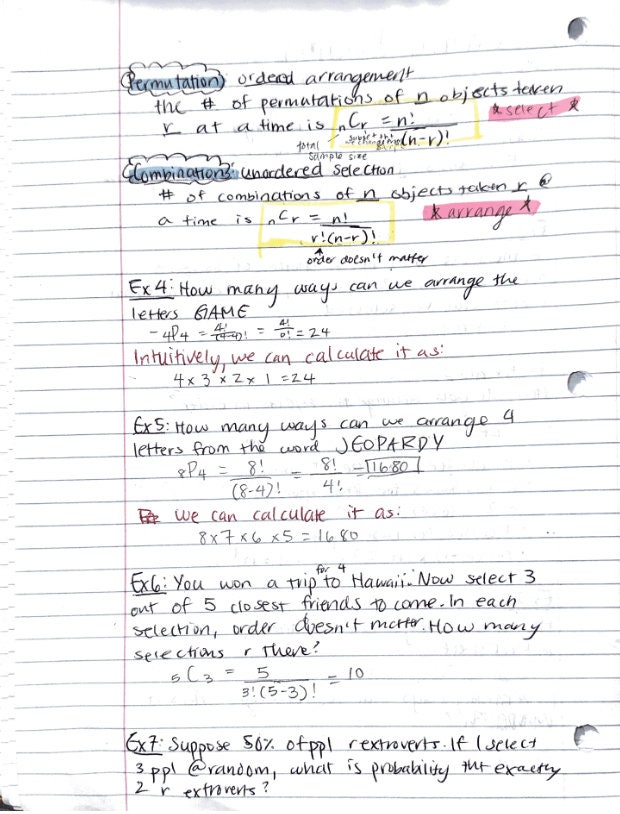 Permutation) ordered arrangement
the # of permutations of n objects taken
r at a time is nCr = n! * select *
total (n-r)!
sample size
Combinations: unordered selection
# of combinations of n objects taken r @
a time is nCr = n! * arrange *
r!(n-r)!
order doesn't matter
Ex4: How many ways can we arrange the
letters GAME
- 4P4 = 4!/(4-4)! = 4!/0! = 24
Intuitively, we can calculate it as:
4 x 3 x 2 x 1 = 24
Ex5: How many ways can we arrange 4
letters from the word JEOPARDY
8P4 = 8!/(8-4)! = 8!/4! = 1680
We can calculate it as:
8 x 7 x 6 x 5 = 1680
for 4
Ex6: You won a trip to Hawaii. Now select 3
out of 5 closest friends to come. In each
selection, order doesn't matter. How many
selections r there?
5C3 = 5/3!(5-3)! = 10
Ex7: Suppose 50% of ppl r extroverts. If I select
3 ppl @ random, what is probability tht exactly
2 r extroverts?